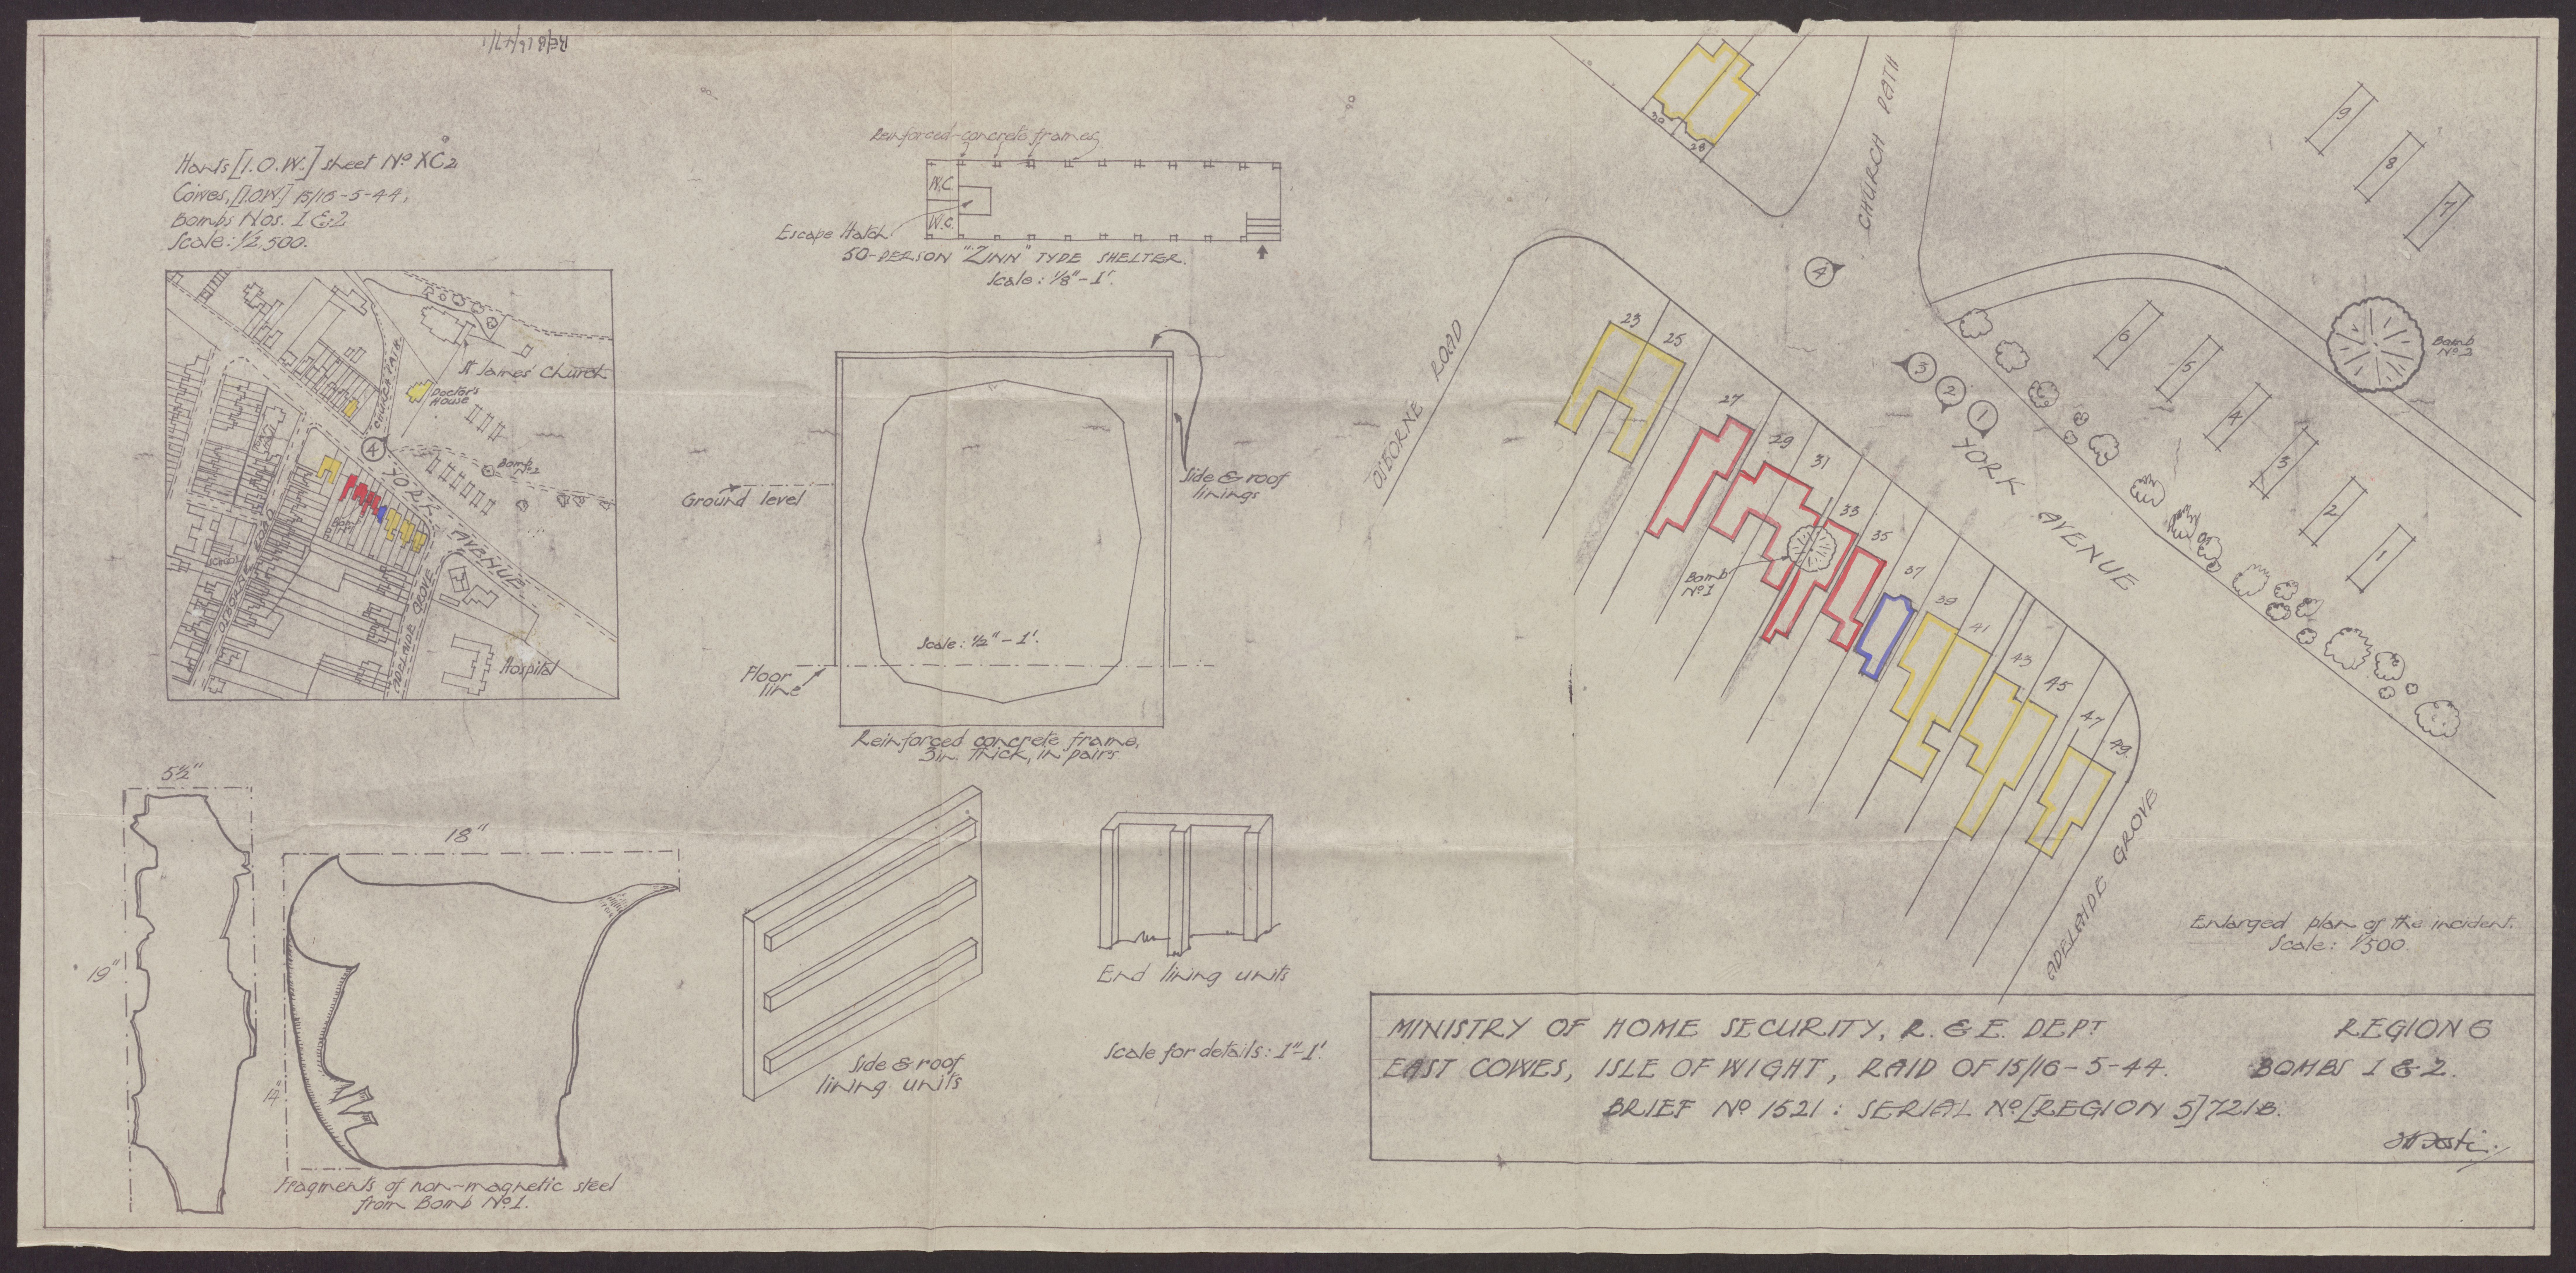 RE/B16/47/1
Hants [I.O.W.] sheet Nº XC2
Cowes, [I.O.W] 15/16-5-44,
Bombs Nos. 1 & 2
Scale: 1/2,500.
CHURCH PATH
St James' Church
Doctor's
House
4
Bomb
Nº 2
YORK AVENUE
Bomb
Nº 1
School
OSBORNE ROAD
ADELAIDE GROVE
Hospital
Reinforced-concrete frames
W.C.
W.C.
Escape Hatch
50-PERSON "ZINN" TYPE SHELTER.
Scale: 1/8" - 1'.
Side & roof
linings
Ground level
Scale: 1/2" - 1'.
Floor
line
Reinforced concrete frame,
3in. thick, in pairs
5½"
19"
18"
14"
Fragments of non-magnetic steel
from Bomb Nº 1.
Side & roof
lining units
End lining units
Scale for details: 1"-1'.
30
28
CHURCH PATH
9
8
7
4
OSBORNE ROAD
23
25
27
29
31
33
35
37
39
41
43
45
47
49
3
2
1
6
5
4
3
2
1
Bomb
Nº 2
Bomb
Nº 1
YORK AVENUE
ADELAIDE GROVE
Enlarged plan of the incident.
Scale: 1/500.
MINISTRY OF HOME SECURITY, R. & E. DEPT REGION 6
EAST COWES, ISLE OF WIGHT, RAID OF 15/16-5-44. BOMBS 1 & 2.
BRIEF Nº 1521: SERIAL Nº [REGION 5] 721B.